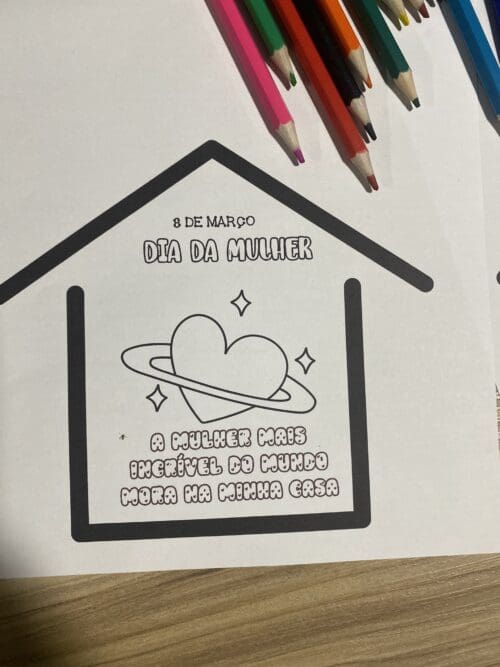 8 DE MARÇO
DIA DA MULHER
A MULHER MAIS
INCRÍVEL DO MUNDO
MORA NA MINHA CASA